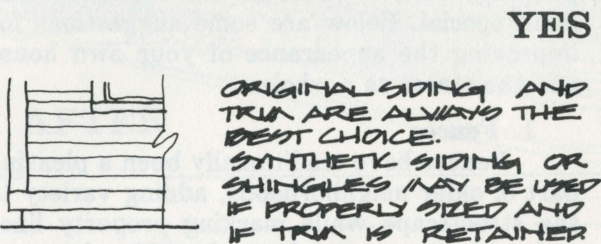 YES
ORIGINAL SIDING AND
TRIM ARE ALWAYS THE
BEST CHOICE.
SYNTHETIC SIDING OR
SHINGLES MAY BE USED
IF PROPERLY SIZED AND
IF TRIM IS RETAINED.